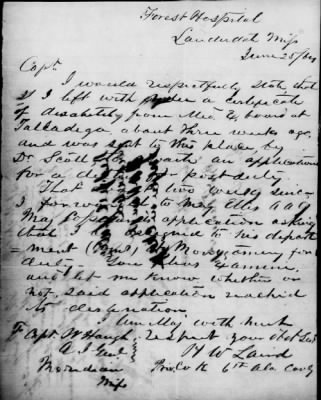 Forest Hospital
Lauderdale Miss
June 25/64
Capt.
I would respectfully state that
I left with a certificate
of disability from Med. Ex board at
Talladega, about three weeks ago,
and was sent to this place by
Dr Scott an application
for a post duty
That two weeks since
I forwarded to Maj Ellis AAG
Maj application asking
that I be assigned to his depart
-ment at Montgomery for
duty. examine
and let me know whether or
not, said application reached
its designation.
I Am Maj with much
To Capt. W Haugh, respect your obt Servt
A I Genl H W Laird
Meridian Priv Co K 6th Ala Cavly
Miss